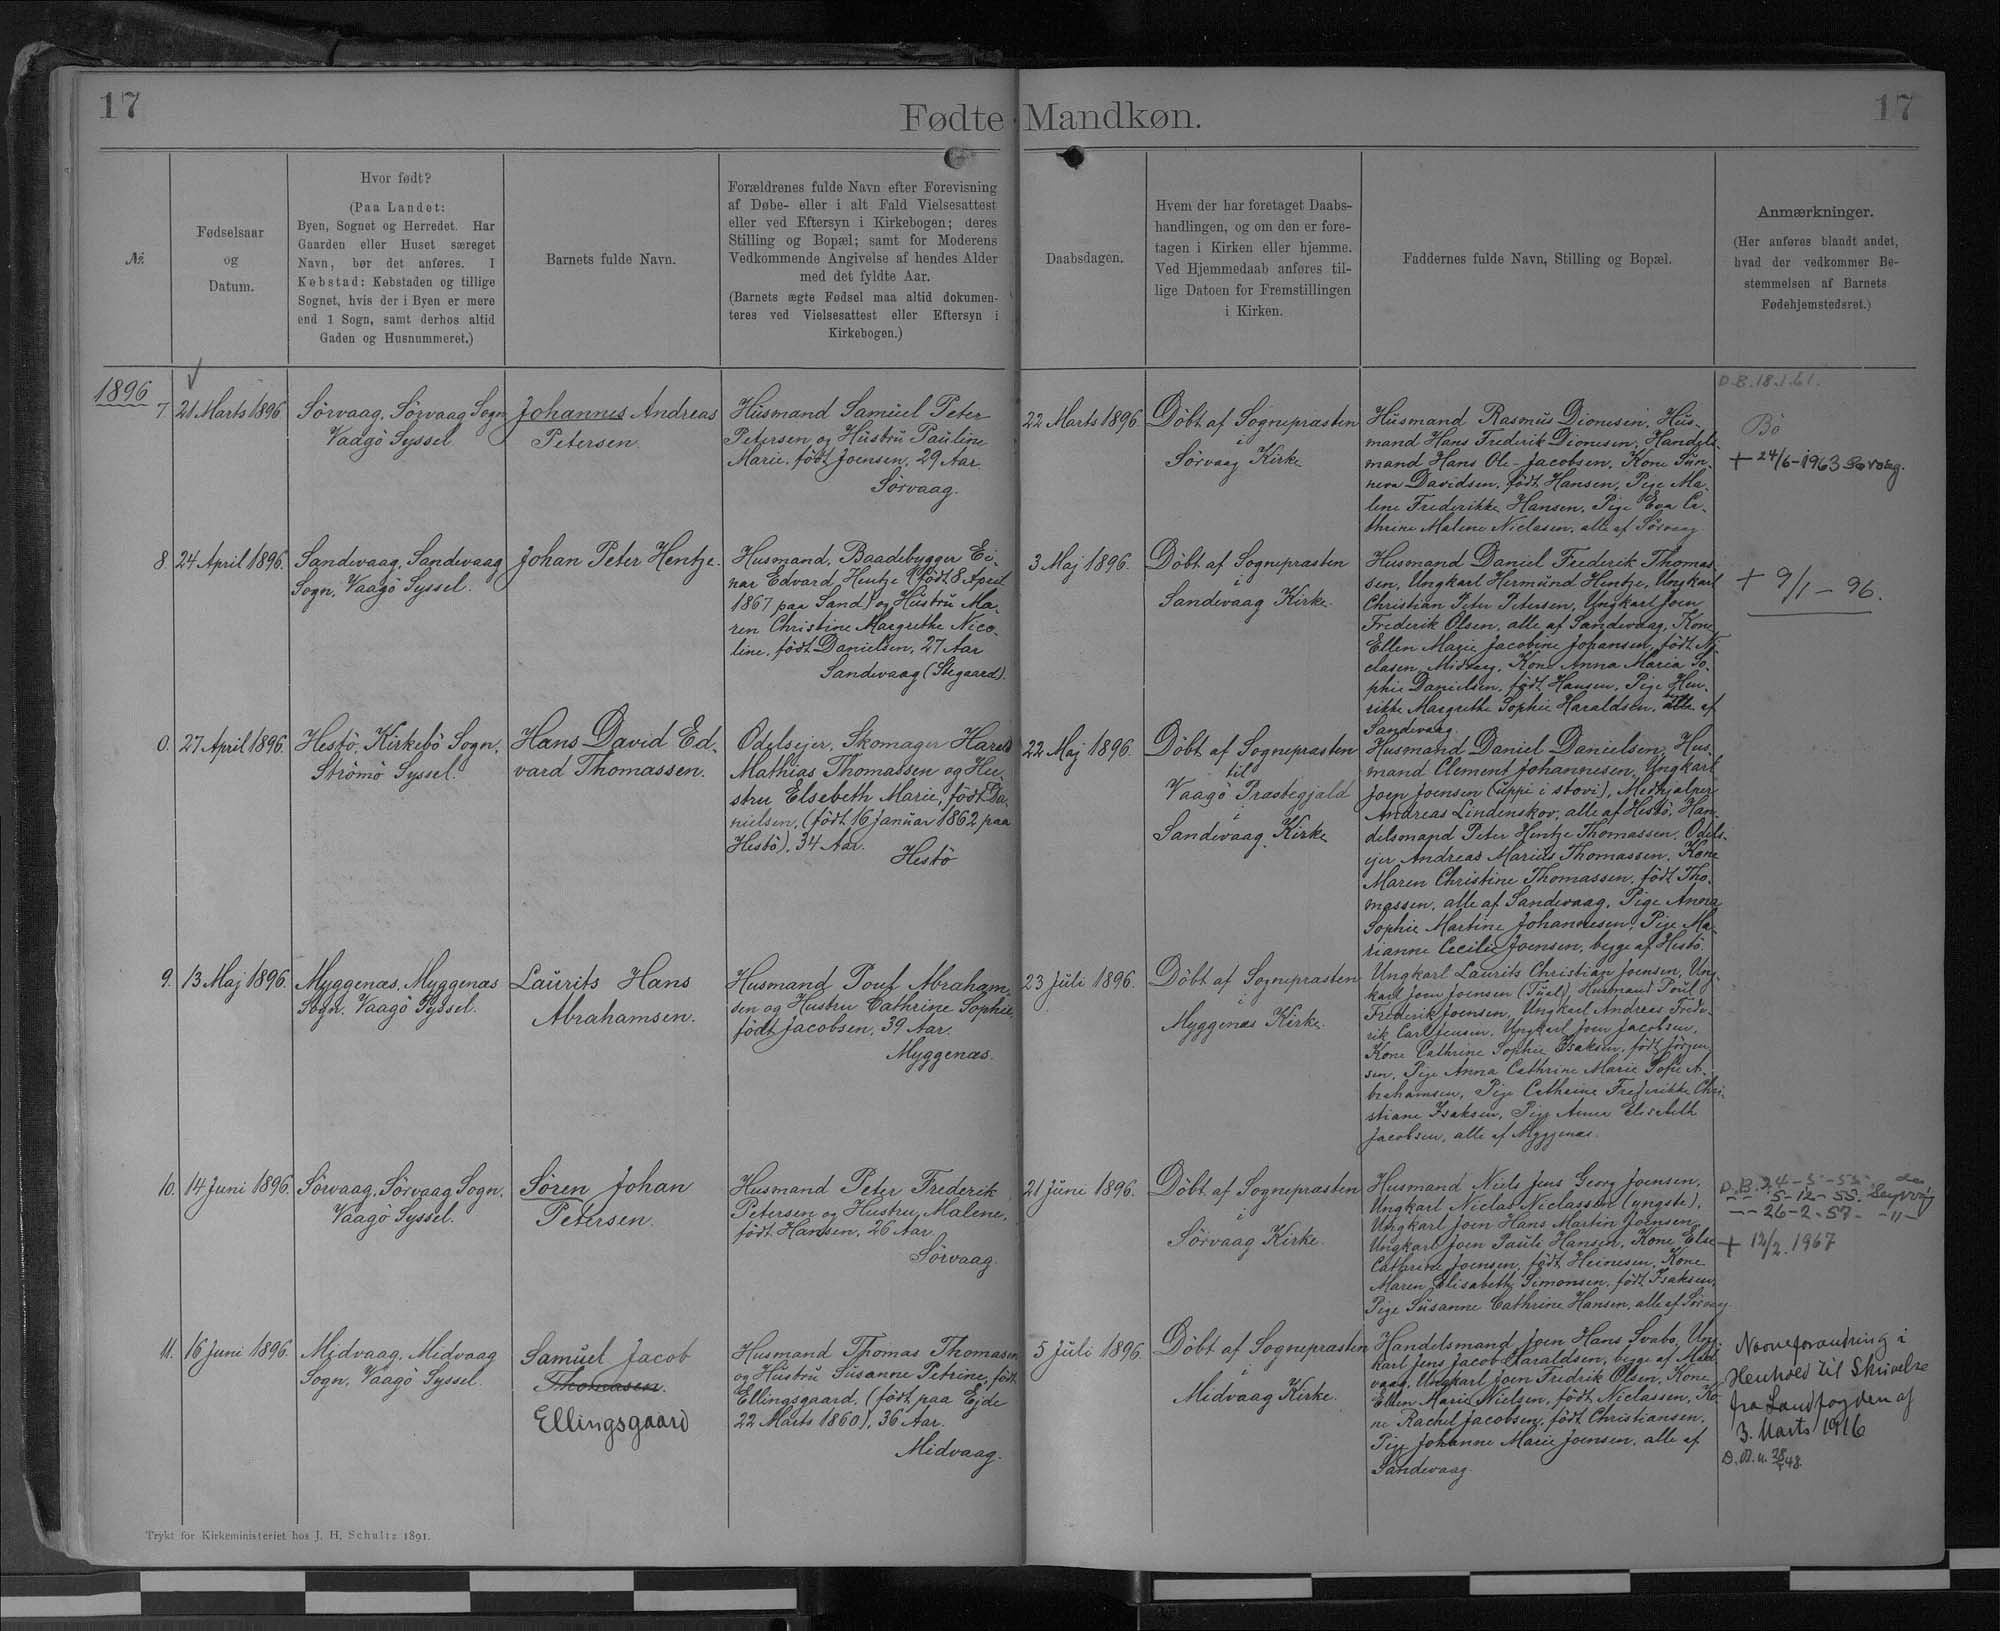 17
Fødte Mandkøn.
17
№
Fødselsaar
og
Datum.
Hvor født?
(Paa Landet:
Byen, Sognet og Herredet. Har
Gaarden eller Huset særeget
Navn, bør det anføres. I
Købstad: Købstaden og tillige
Sognet, hvis der i Byen er mere
end 1 Sogn, samt derhos altid
Gaden og Husnummeret.)
Barnets fulde Navn.
Forældrenes fulde Navn efter Forevisning
af Døbe- eller i alt Fald Vielsesattest
eller ved Eftersyn i Kirkebogen; deres
Stilling og Bopæl; samt for Moderens
Vedkommende Angivelse af hendes Alder
med det fyldte Aar.
(Barnets ægte Fødsel maa altid dokumen-
teres ved Vielsesattest eller Eftersyn i
Kirkebogen.)
Daabsdagen.
Hvem der har foretaget Daabs-
handlingen, og om den er fore-
tagen i Kirken eller hjemme.
Ved Hjemmedaab anføres til-
lige Datoen for Fremstillingen
i Kirken.
Faddernes fulde Navn, Stilling og Bopæl.
Anmærkninger.
(Her anføres blandt andet,
hvad der vedkommer Be-
stemmelsen af Barnets
Fødehjemstedsret.)
1896
7. 21 Marts 1896
Sörvaag, Sörvaag Sogn
Vaagö Syssel
Johannes Andreas
Petersen
Husmand Samuel Peter
Petersen og Hustru Pauline
Marie, födt Joensen, 29 Aar
Sörvaag.
22 Marts 1896.
Döbt af Sognepræsten
i
Sörvaag Kirke
Husmand Rasmus Dionesen, Hus-
mand Hans Frederik Dionesen, Handels-
mand Hans Ole Jacobsen, Kone Sun-
neva Davidsen, födt Hansen, Pige Ma-
lene Frederikke Hansen, Pige Eva Ca-
thrine Malene Niclasen, alle af Sörvaag
D.B. 18.1.61.
Bö
+ 24/6-1963 Sörvaag.
8. 24 April 1896.
Sandevaag, Sandevaag
Sogn, Vaagö Syssel.
Johan Peter Hentze.
Husmand, Baadebygger Ei-
nar Edvard Hentze (födt 8 April
1867 paa Sand) og Hustru Ma-
ren Christine Margrethe Nico-
line, födt Danielsen, 27 Aar
Sandevaag (Stegaard).
3 Maj 1896.
Döbt af Sognepræsten
i
Sandevaag Kirke.
Husmand Daniel Frederik Thomas-
sen, Ungkarl Hermund Hentze, Ungkarl
Christian Peter Petersen, Ungkarl Joen
Frederik Olsen, alle af Sandevaag, Kone
Ellen Marie Jacobine Johansen, födt Ni-
clasen, Midvaag, Kone Anna Maria So-
phie Danielsen, födt Hansen, Pige Hen-
rikke Margrethe Sophie Haraldsen, alle af
Sandevaag
+ 9/1 - 96.
0. 27 April 1896.
Hestö, Kirkebö Sogn,
Strömö Syssel.
Hans David Ed-
vard Thomassen.
Odelsejer, Skomager Harald
Mathias Thomassen og Hu-
stru Elsebeth Marie, födt Da-
nielsen, (födt 16 Januar 1862 paa
Hestö), 34 Aar.
Hestö
22 Maj 1896.
Döbt af Sognepræsten
til
Vaagö Præstegjæld
i
Sandevaag Kirke
Husmand Daniel Danielsen, Hus-
mand Clement Johannesen, Ungkarl
Joen Joensen (uppi i stovi), Medhjælper
Andreas Lindenskov, alle af Hestö, Han-
delsmand Peter Hentze Thomassen, Odels-
ejer Andreas Marius Thomassen, Kone
Maren Christine Thomassen, födt Tho-
massen, alle af Sandevaag, Pige Anna
Sophie Martine Johannesen, Pige Ma-
rianne Cecilie Joensen, begge af Hestö.
9. 13 Maj 1896.
Myggenæs, Myggenæs
Sogn, Vaagö Syssel.
Laurits Hans
Abrahamsen.
Husmand Poul Abraham-
sen og Hustru Cathrine Sophie,
födt Jacobsen, 39 Aar.
Myggenæs.
23 Juli 1896.
Döbt af Sognepræsten
i
Myggenæs Kirke.
Ungkarl Laurits Christian Joensen, Ung-
karl Joen Joensen, Husmand Poul
Frederik Joensen, Ungkarl Andreas Frede-
rik Carl Jensen, Ungkarl Joen Jacobsen,
Kone Cathrine Sophie Isaksen, födt Jörgen-
sen, Pige Anna Cathrine Marie Sofie A-
brahamsen, Pige Cathrine Frederikke Chri-
stiane Isaksen, Pige Anna Elisabeth
Jacobsen, alle af Myggenæs.
10. 14 Juni 1896.
Sörvaag, Sörvaag Sogn,
Vaagö Syssel.
Sören Johan
Petersen.
Husmand Peter Frederik
Petersen og Hustru Malene,
födt Hansen, 26 Aar.
Sörvaag.
21 Juni 1896.
Döbt af Sognepræsten
i
Sörvaag Kirke.
Husmand Niels Jens Georg Joensen,
Ungkarl Niclas Niclassen (yngste),
Ungkarl Joen Hans Martin Joensen,
Ungkarl Joen Pauli Hansen, Kone Else
Cathrine Joensen, födt Heinesen, Kone
Maren Elisabeth Simonsen, födt Isaksen,
Pige Susanne Cathrine Hansen, alle af Sörvaag
D.B. 24-5-55
-- 5-12-55.
-- 26-2-57- -"-
+ 12/2. 1967
11. 16 Juni 1896.
Midvaag, Midvaag
Sogn, Vaagö Syssel.
Samuel Jacob
Thomasen.
Ellingsgaard
Husmand Thomas Thomasen
og Hustru Susanne Petrine, födt
Ellingsgaard, (födt paa Ejde
22 Marts 1860), 36 Aar.
Midvaag.
5 Juli 1896.
Döbt af Sognepræsten
i
Midvaag Kirke.
Handelsmand Joen Hans Svabo, Ung-
karl Jens Jacob Haraldsen, begge af Mid-
vaag, Ungkarl Joen Fredrik Olsen, Kone
Ellen Marie Nielsen, födt Niclassen, Ko-
ne Rachel Jacobsen, födt Christiansen,
Pige Johanne Marie Joensen, alle af
Sandevaag
Navneforandring i
Henhold til Skrivelse
fra Landfogden af
3. Marts 1916
Trykt for Kirkeministeriet hos J. H. Schultz 1891.